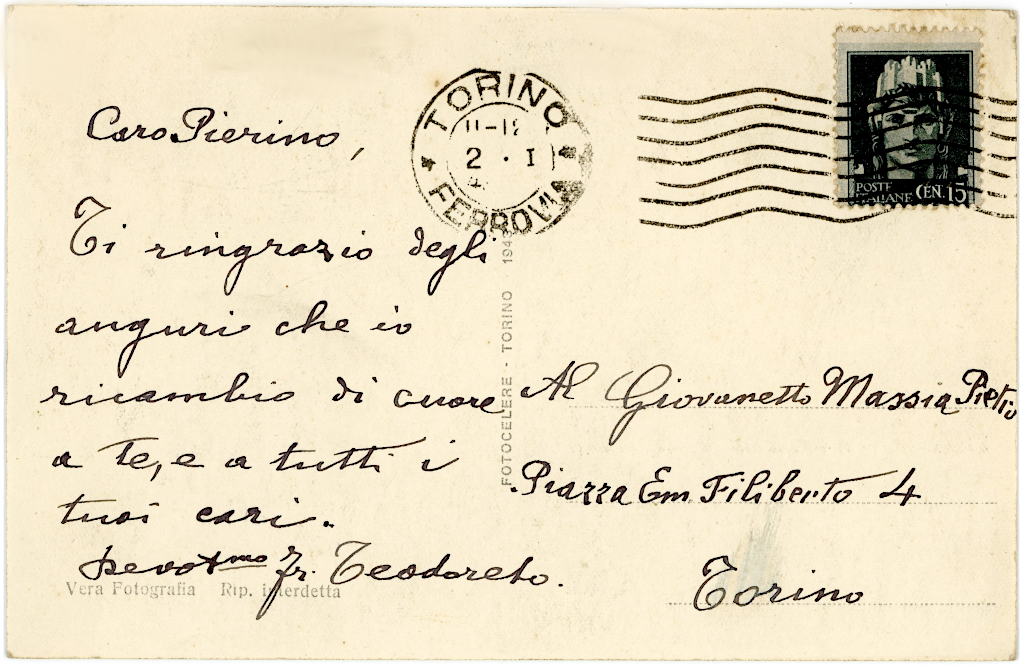 Caro Pierino,
Ti ringrazio degli
auguri che io
ricambio di cuore
a te, e a tutti i
tuoi cari.
Devotmo Fr. Teodoreto.
Vera Fotografia Rip. interdetta
FOTOCELERE - TORINO
TORINO
2 · I
FERROVIA
POSTE
ITALIANE CEN. 15
Al Giovanetto Massia Pietro
Piazza Em Filiberto 4
Torino